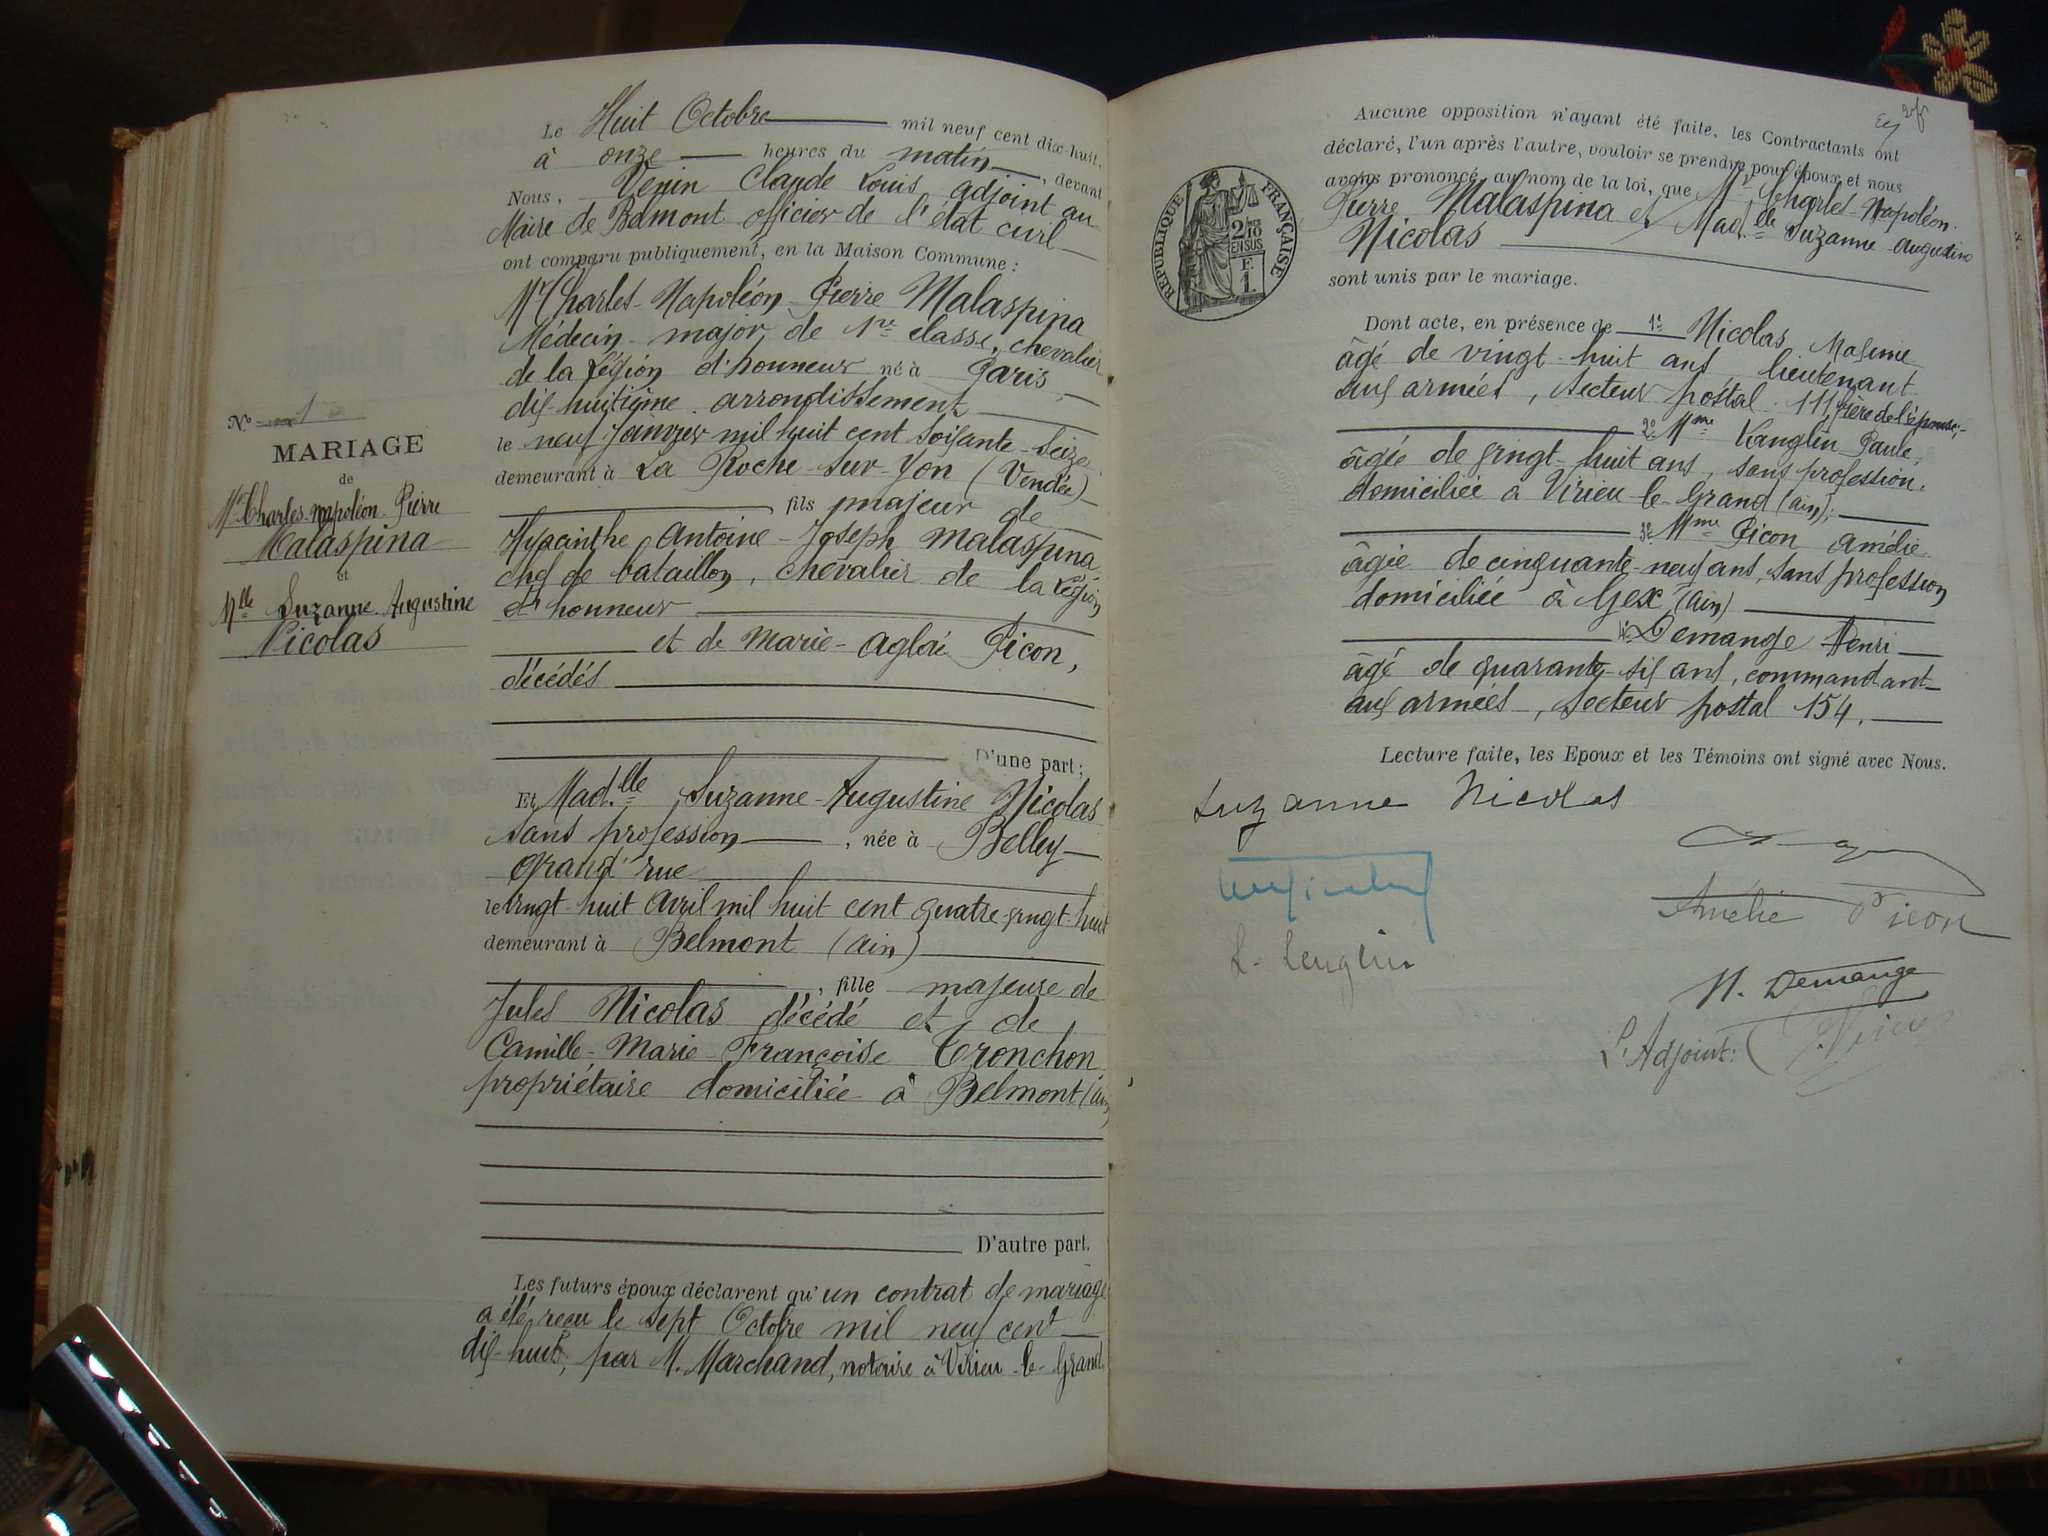 Le Huit Octobre mil neuf cent dix-huit,
à onze heures du matin, devant
Nous, Venin Claude Louis adjoint au
Maire de Belmont officier de l'état civil
ont comparu publiquement, en la Maison Commune :
Mr Charles-Napoléon-Pierre Malaspina
Médecin-major de 1re classe, chevalier
de la Légion d'honneur né à Paris,
dix-huitième arrondissement
le neuf Janvier mil huit cent soixante-seize
demeurant à La Roche-sur-Yon (Vendée)
fils majeur de
Hyacinthe Antoine-Joseph Malaspina
chef de bataillon, chevalier de la Légion
d'honneur
et de Marie-Aglaé Picon,
décédés
D'une part ;
Et Mad.lle Suzanne-Augustine Nicolas
sans profession, née à Belley
grand'rue
le vingt-huit avril mil huit cent quatre-vingt-huit
demeurant à Belmont (ain)
, fille majeure de
Jules Nicolas décédé et de
Camille-Marie-Françoise Tronchon
propriétaire domiciliée à Belmont (ain)
D'autre part.
Les futurs époux déclarent qu'un contrat de mariage
a été reçu le sept Octobre mil neuf cent
dix-huit, par M. Marchand, notaire à Virieu-le-Grand
No 1
MARIAGE
de
Mr Charles-Napoléon-Pierre
Malaspina
et
Mlle Suzanne-Augustine
Nicolas
Aucune opposition n'ayant été faite, les Contractants ont
déclaré, l'un après l'autre, vouloir se prendre pour époux et nous
avons prononcé, au nom de la loi, que Mr Charles-Napoléon-
Pierre Malaspina et Mad.lle Suzanne Augustine
Nicolas
sont unis par le mariage.
RÉPUBLIQUE FRANÇAISE
2/10 EN SUS
F.
1.
Dont acte, en présence de 1° Nicolas Maxime
âgé de vingt-huit ans, lieutenant
aux armées, secteur postal 111, frère de l'épouse;
2° Mme Vanglin Paule,
âgée de vingt-huit ans, sans profession,
domiciliée à Virieu-le-Grand (ain);
3° Mme Picon Amélie
âgée de cinquante-neuf ans, sans profession
domiciliée à Gex (ain)
4° Demange Henri
âgé de quarante-six ans, commandant
aux armées, secteur postal 154.
Lecture faite, les Epoux et les Témoins ont signé avec Nous.
Suzanne Nicolas
Amélie Picon
H. Demange
L'Adjoint :